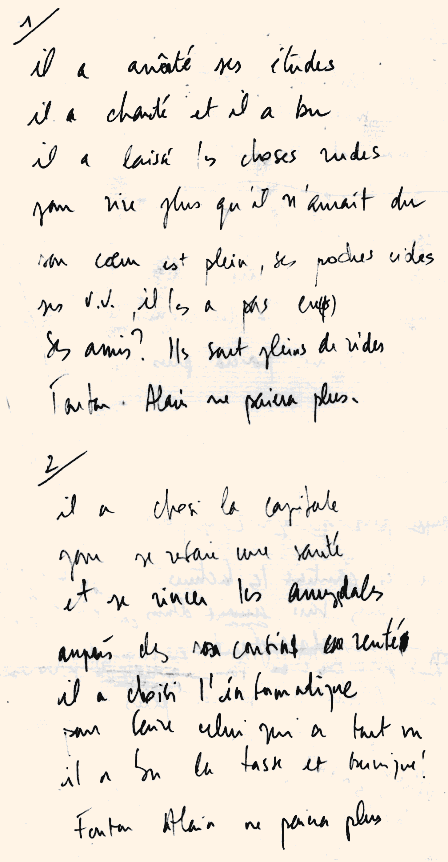 1/
il a arrêté ses études
il a chanté et il a bu
il a laissé les choses rudes
pour rire plus qu'il n'aurait du
son cœur est plein, ses poches vides
ses U.V., il les a pas eu(s)
Ses amis? Ils sont pleins de rides
Tonton Alain ne paiera plus.
2/
il a choisi la capitale
pour se refaire une santé
et se rincer les amygdales
auprès des continf en
il a choisi l'informatique
pour faire celui qui a tout vu
il a bu la tasse et
Tonton Alain ne paiera plus